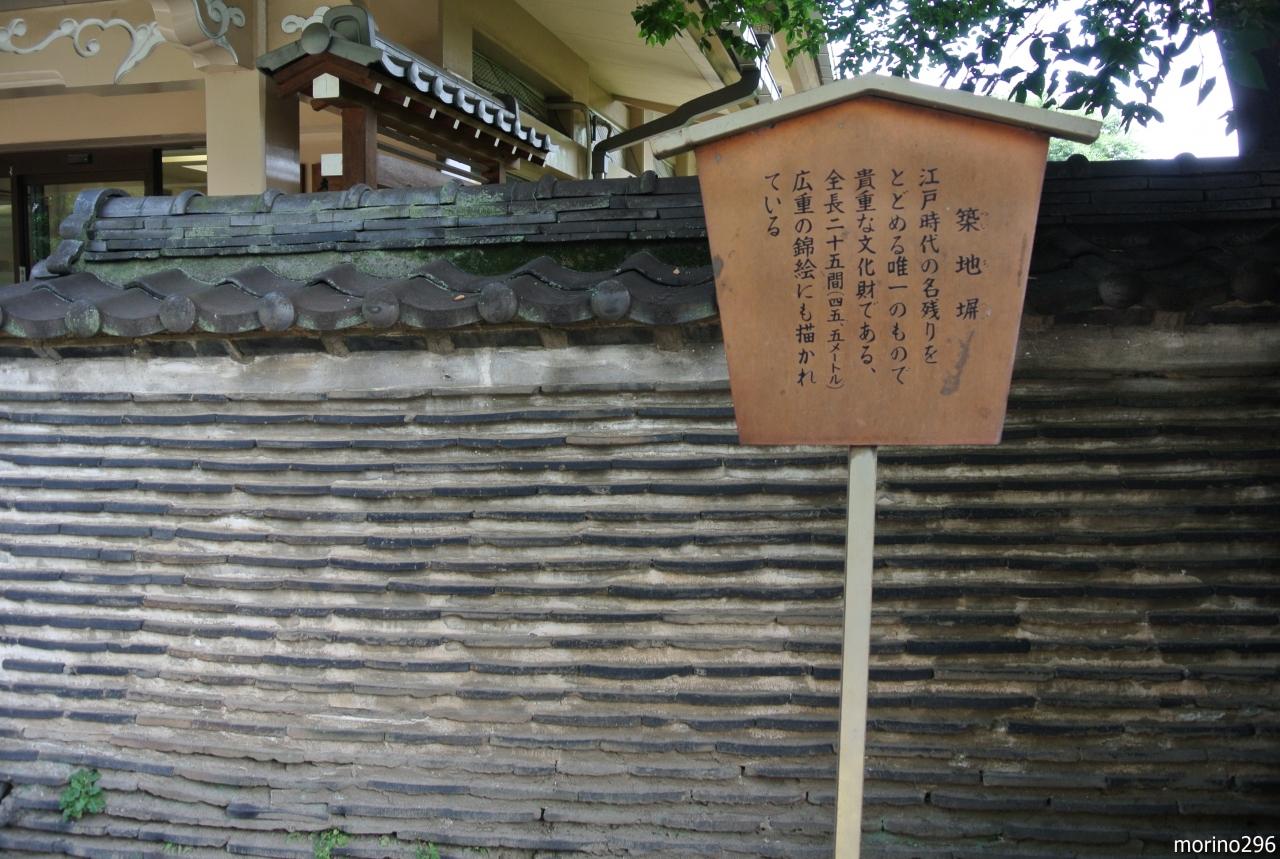 築地塀
江戸時代の名残りを
とどめる唯一のもので
貴重な文化財である、
全長二十五間(四五、五メートル)
広重の錦絵にも描かれ
ている
morino296